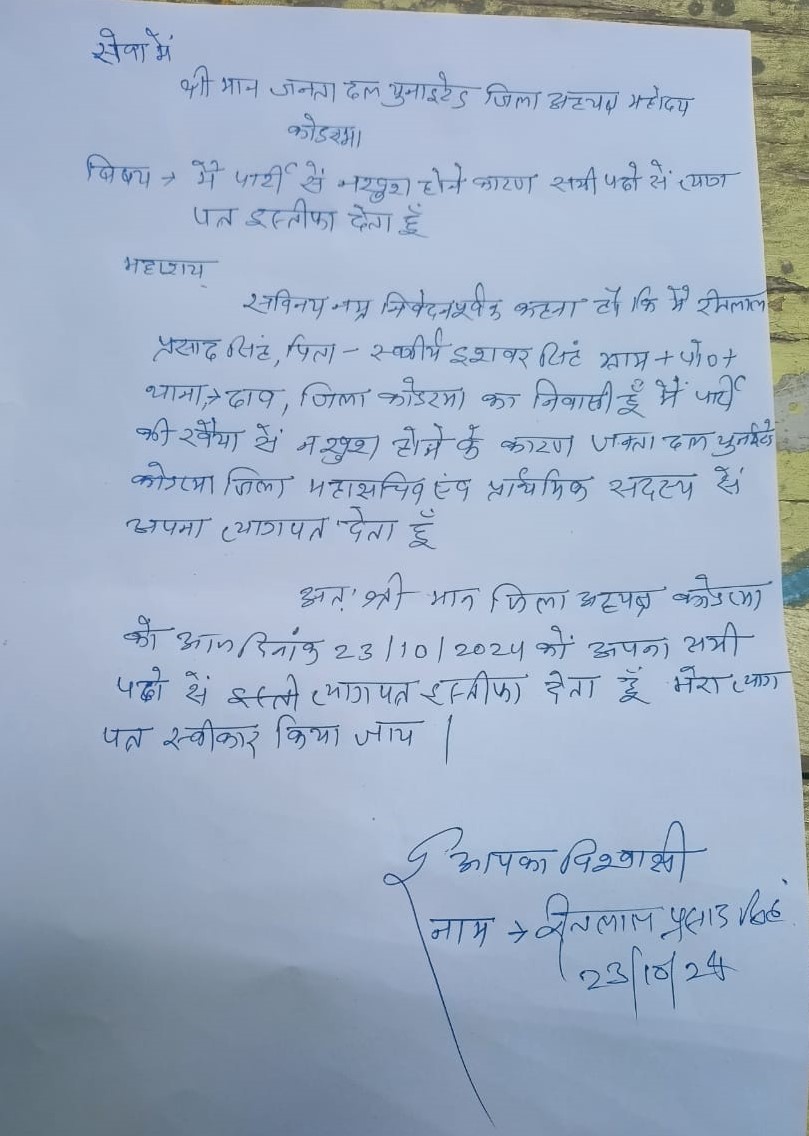 सेवा में
श्री मान जनता दल युनाइटेड जिला अध्यक्ष महोदय
कोडरमा
बिषय → मैं पार्टी सें नाखुश होने कारण सभी पदो सें त्याग
पत्र इस्तीफा देता हूँ
महाशय
सविनय नम्र निवेदनपूर्वक कहना हैं कि मैं
प्रसाद सिंह, पिता - स्वर्गीय इशवर सिंह ग्राम + पो० +
थाना, → , जिला कोडरमा का निवासी हूँ मैं पार्टी
की रवैया सें नाखुश होने के कारण जनता दल युनाईटेड
कोडरमा जिला महासचिव एंव प्राथमिक सदस्य सें
अपना त्यागपत्र देता हूँ
अतः श्री मान जिला अध्यक्ष कोडरमा
को आज दिनांक 23/10/2024 कों अपना सभी
पदों सें त्यागपत्र इस्तीफा देता हूँ मेरा त्याग
पत्र स्वीकार किया जाय |
आपका विश्वासी
नाम → प्रसाद सिंह
23/10/24